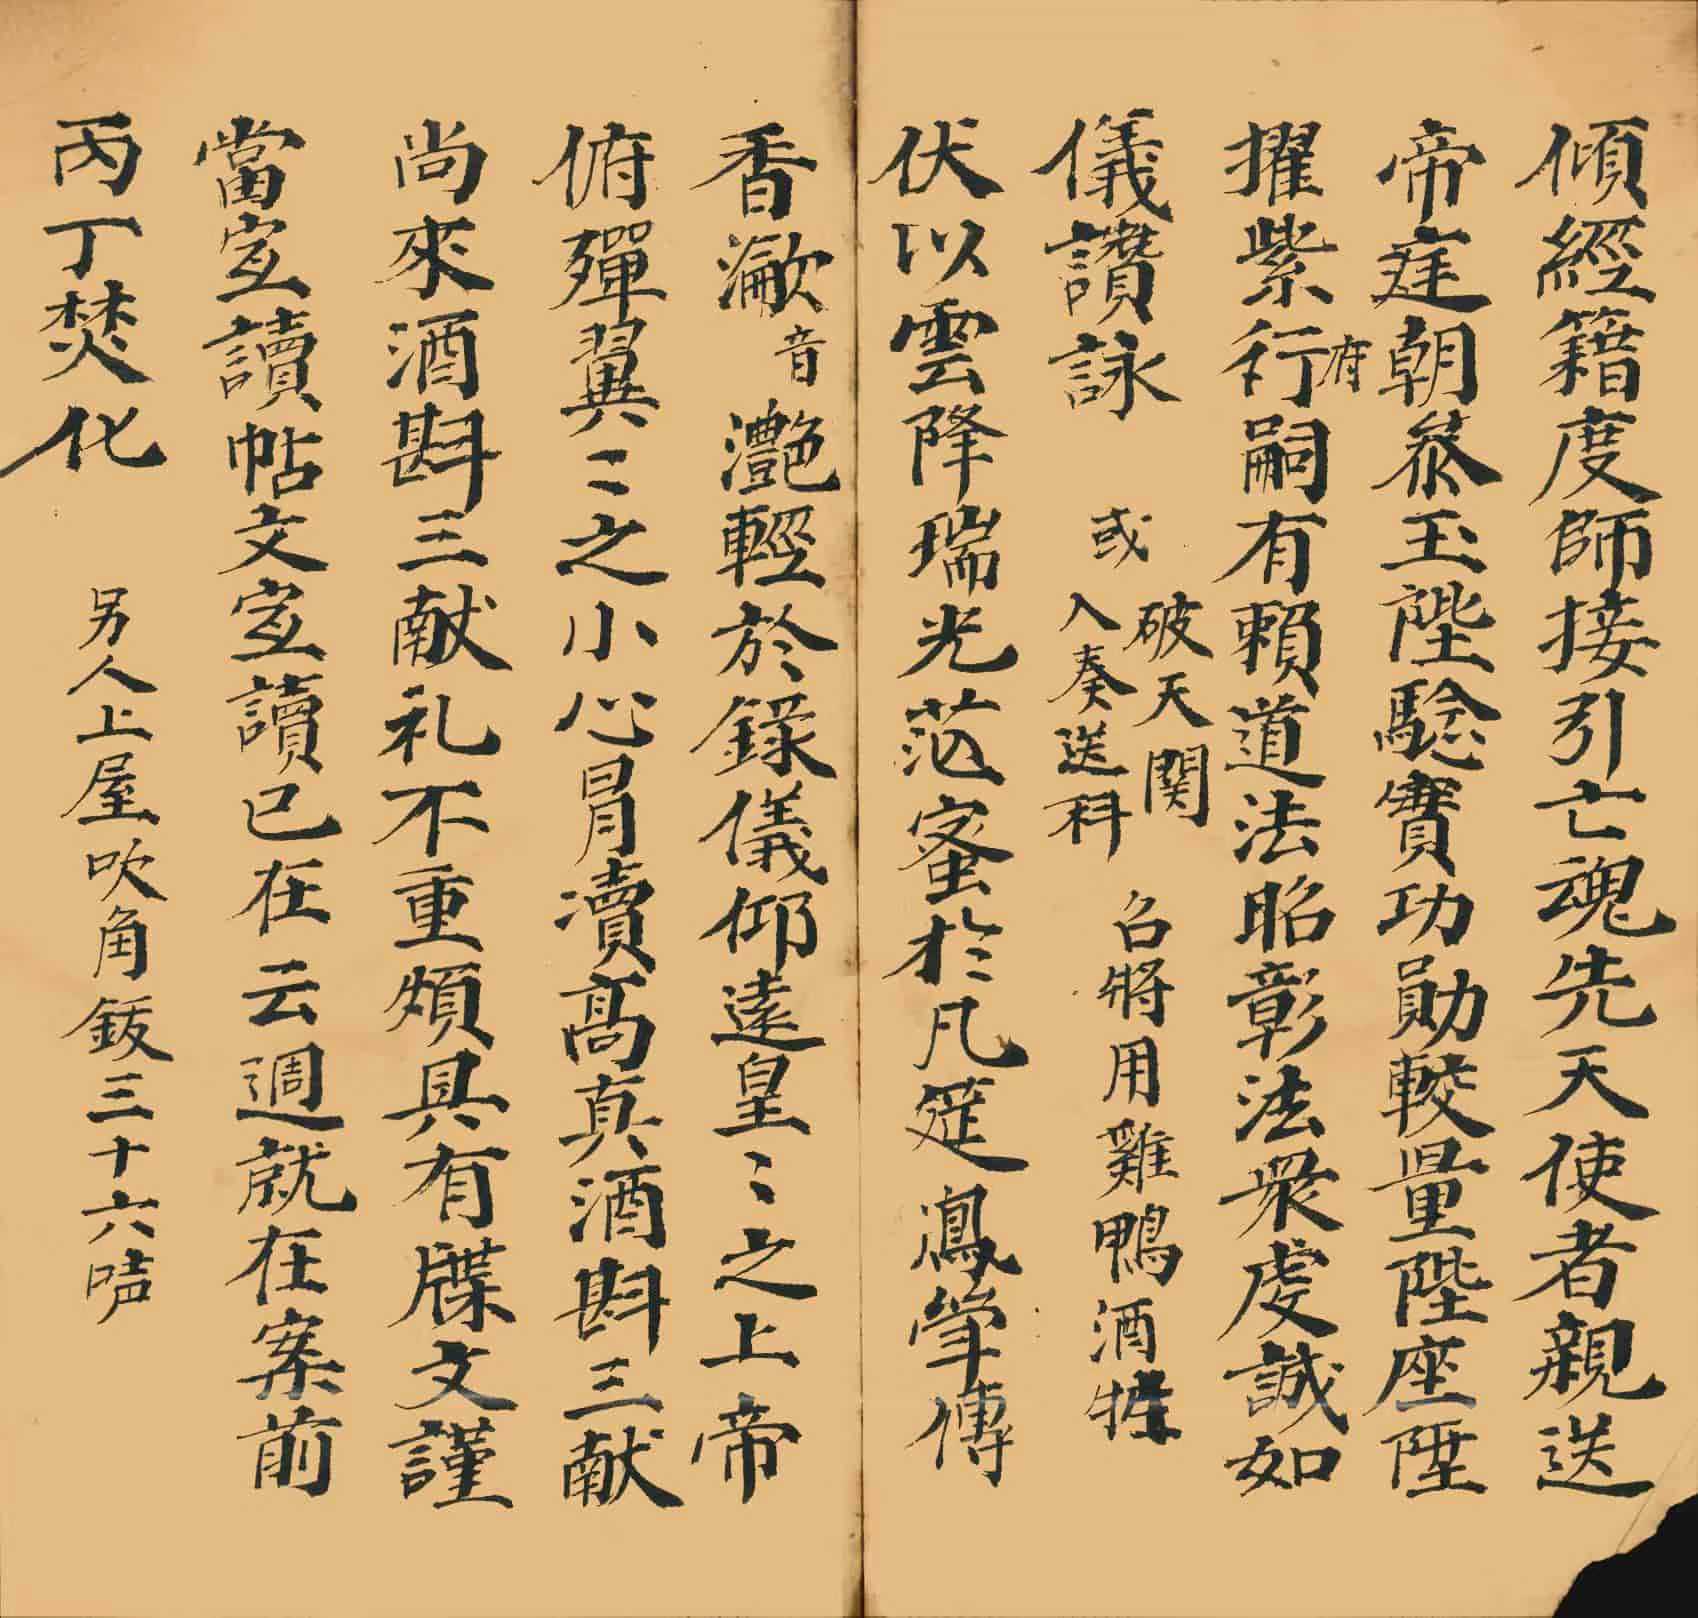 傾經籍度師接引亡魂先天使者親送
帝庭朝叅玉陛騐實功勛較量陛座陞
擢紫府行嗣有賴道法昭彰法衆虔誠如
儀讚詠 或 破天関 入奏送科 召將用雞鴨酒牲
伏以雲降瑞光范蜜於凡筵鳳傳
香瀜音灧輕於錄儀仰遠皇〻之上帝
俯殫翼〻之小心冐瀆髙真酒斟三献
尚來酒斟三献礼不重煩具有牒文謹
當宣讀帖文宣讀已在云週就在案前
丙丁焚化 另人上屋吹角鈸三十六声